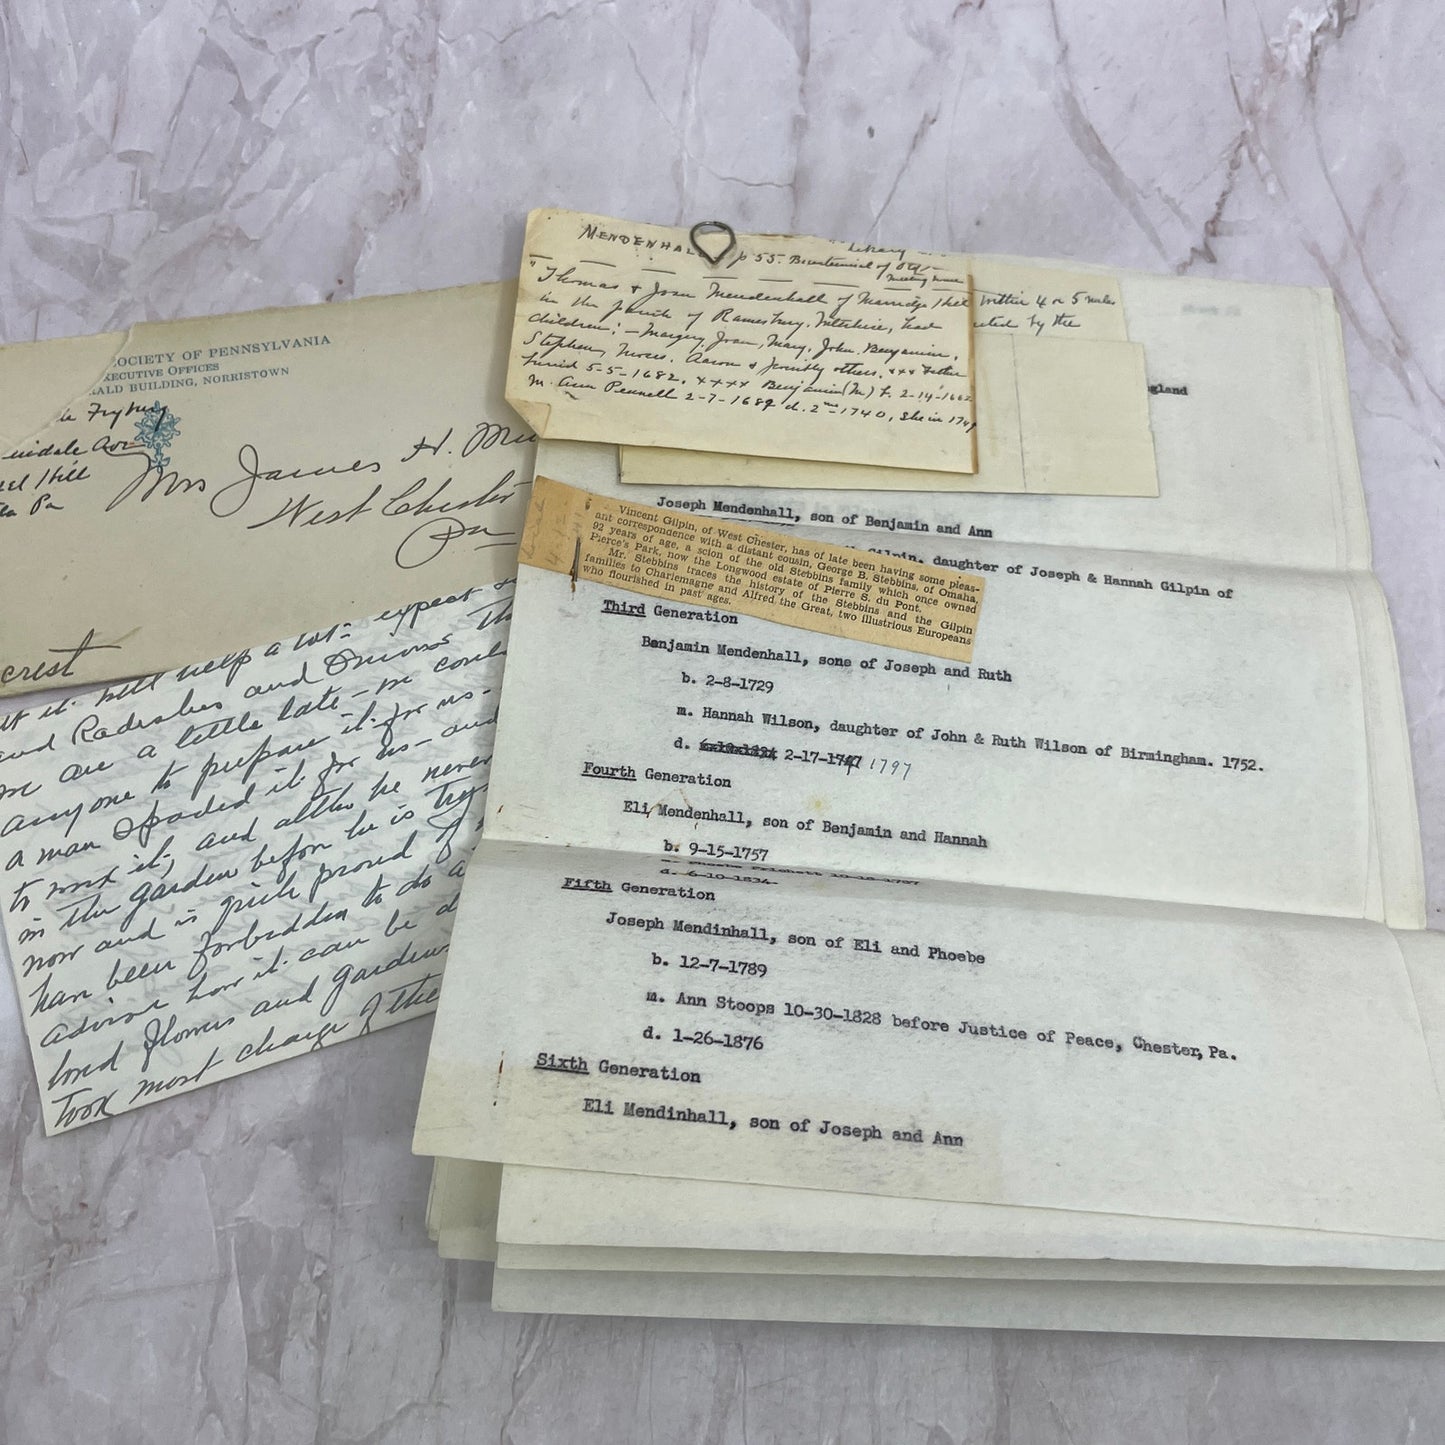 OCIETY OF PENNSYLVANIA
EXECUTIVE OFFICES
ALD BUILDING, NORRISTOWN
Hill
Pa
Mrs James H.
West Chester
Pa
crest
it will help a lot - expect
and Radishes and Onions
we are a little late - we could
anyone to prepare it for us -
a man spaded it for us - and
to work it, and altho he never
in the garden before he is
now and is quite proud of
have been forbidden to do a
advise how it can be d
loved flowers and gardens
took most charge of the
MENDENHALL p 55. Bicentennial of Old
Meeting House
"Thomas & Joan Mendenhall of Marridge Hill
in the parish of Ramesbury, Wiltshire, had
Children: - Margery, Joan, Mary, John, Benjamin,
Stephen, Moses. Aaron & possibly others. xxx Father
buried 5-5-1682. xxxx Benjamin (M) b. 2-14-1662
m. Ann Pennell 2-7-1689 d. 2 mo - 1740, She in 1749
within 4 or 5 miles
by the
gland
Joseph Mendenhall, son of Benjamin and Ann
Gilpin, daughter of Joseph & Hannah Gilpin of
Vincent Gilpin, of West Chester, has of late been having some pleas-
ant correspondence with a distant cousin, George B. Stebbins, of Omaha,
92 years of age, a scion of the old Stebbins family which once owned
Pierce's Park, now the Longwood estate of Pierre S. du Pont.
Mr. Stebbins traces the history of the Stebbins and the Gilpin
families to Charlemagne and Alfred the Great, two illustrious Europeans
who flourished in past ages.
Third Generation
Benjamin Mendenhall, sone of Joseph and Ruth
b. 2-8-1729
m. Hannah Wilson, daughter of John & Ruth Wilson of Birmingham. 1752.
d. 2-17-1797 1797
Fourth Generation
Eli Mendenhall, son of Benjamin and Hannah
b. 9-15-1757
d. 6-10-1834.
Fifth Generation
Joseph Mendinhall, son of Eli and Phoebe
b. 12-7-1789
m. Ann Stoops 10-30-1828 before Justice of Peace, Chester, Pa.
d. 1-26-1876
Sixth Generation
Eli Mendinhall, son of Joseph and Ann